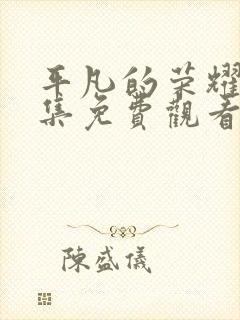 平凡的荣耀
集免費觀看
陳盛儀